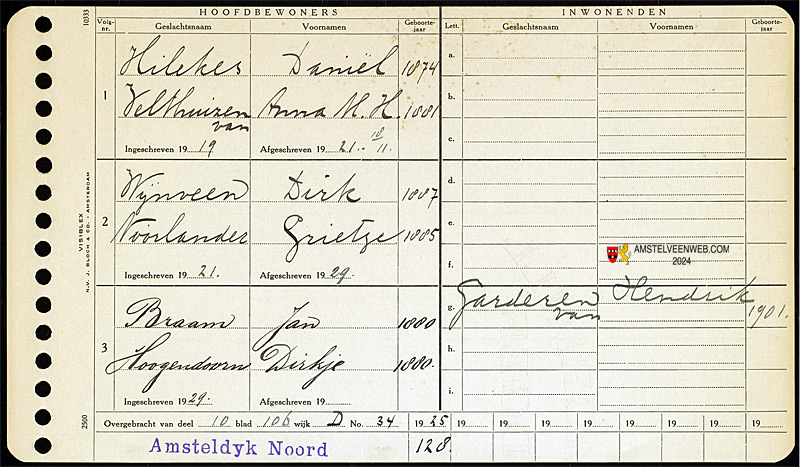 HOOFDBEWONERS INWONENDEN
Volg-nr. Geslachtsnaam Voornamen Geboorte-jaar Lett. Geslachtsnaam Voornamen Geboorte-jaar
10333
Hilekes Daniël 1874 a.
1 Velthuizen Anna M. H. 1881 b.
van
18/11
Ingeschreven 19 19 Afgeschreven 19 21. c.
Wijnveen Dirk 1887 d.
2 Noorlander Grietje 1885 e.
AMSTELVEENWEB.COM
2024
Ingeschreven 19 21. Afgeschreven 19 29. f.
VISIBLEX
N.V. J. BLOCH & CO. - AMSTERDAM
g. Garderen van Hendrik 1901.
Braam Jan 1880
3 Hoogendoorn Dirkje 1880. h.
Ingeschreven 19 29. Afgeschreven 19 i.
2500
Overgebracht van deel 10 blad 106 wijk D No. 34 19 25 19 19 19 19 19 19 19 19
Amsteldyk Noord 128.